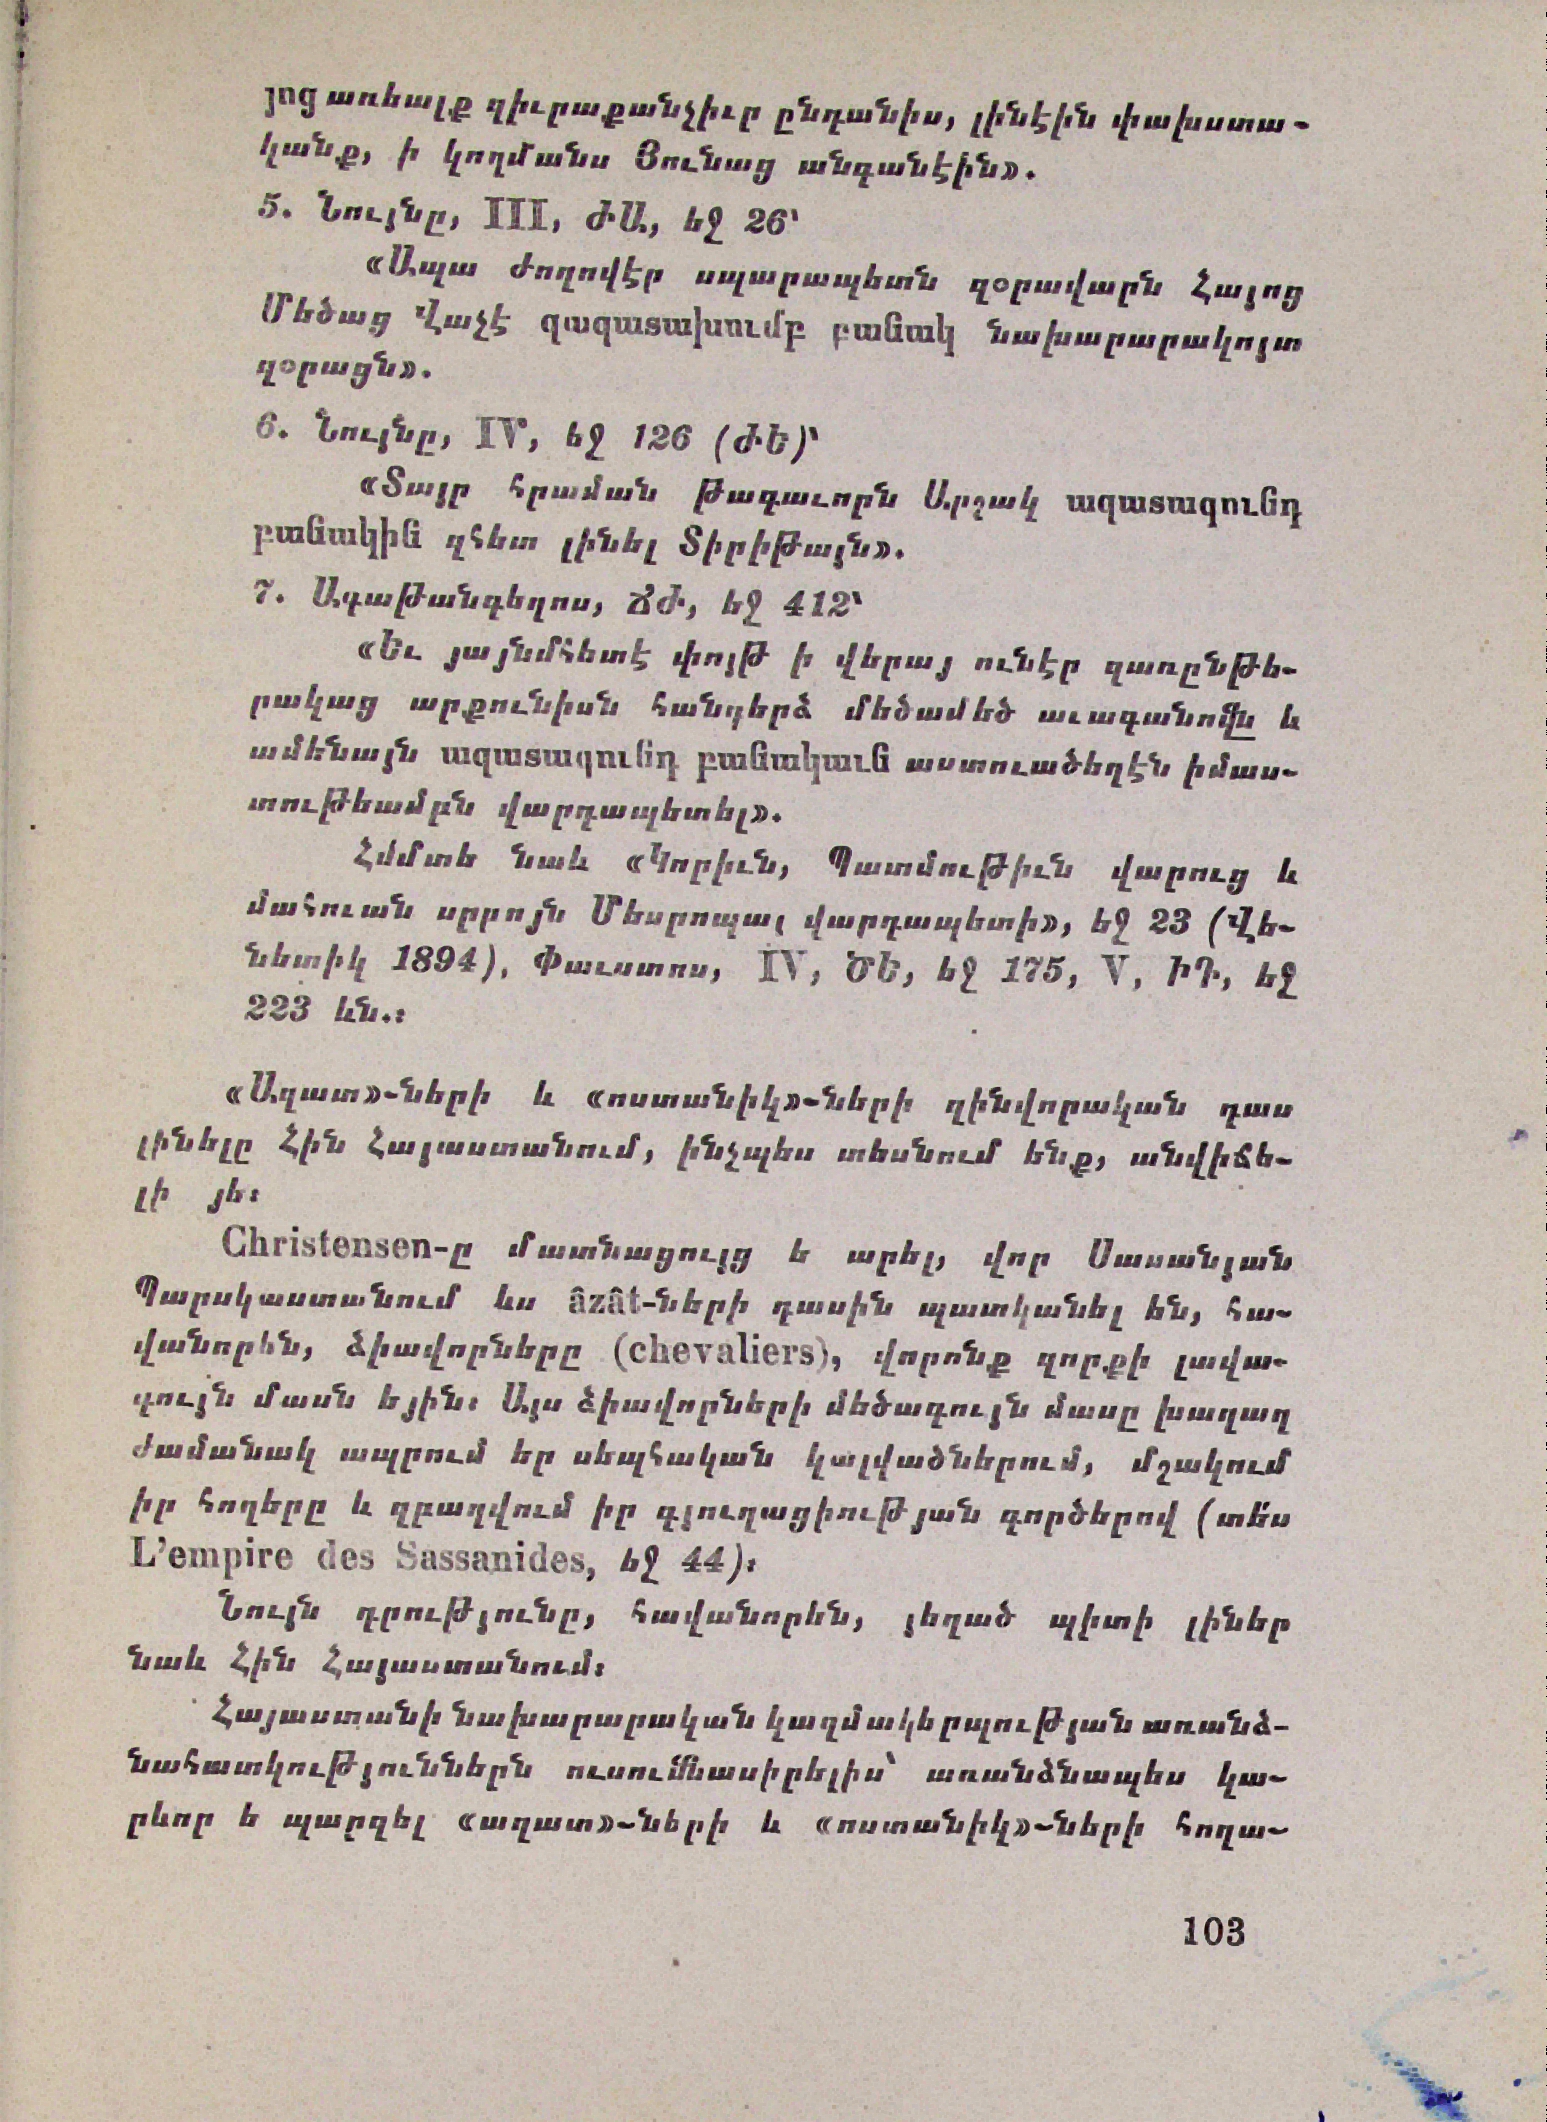 յոց առեալք զիւրաքանչիւր ընդանիս, լինէին փախստա-
կանք, ի կողմանս Յունաց անգանէին».
5. Նույնը, III, ԺԱ, եջ 26՝
«Ապա ժողովէր սպարապետն զօրավարն Հայոց
Մեծաց Վաչէ զազատախումբ բանակ նախարարակոյտ
զօրացն».
6. Նույնը, IV, եջ 126 (ԺԵ)՝
«Տայր հրաման թագաւորն Արշակ ազատագունդ
բանակին զհետ լինել Տիրիթայն».
7. Ագաթանգեղոս, ՃԺ, եջ 412՝
«Եւ յայնմհետէ փոյթ ի վերայ ունէր զառընթե-
րակաց արքունիսն հանդերձ մեծամեծ աւագանոյն և
ամենայն ազատագունդ բանակաւն աստուածեղէն իմաս-
տութեամբն վարդապետել».
Հմմտե նաև «Կորիւն, Պատմութիւն վարուց և
մահուան սրբոյն Մեսրոպայ վարդապետի», եջ 23 (Վե-
նետիկ 1894), Փաւստոս, IV, ԾԵ, եջ 175, V, ԻԴ, եջ
223 ևն.:
«Ազատ»-ների և «ոստանիկ»-ների զինվորական դաս
լինելը Հին Հայաստանում, ինչպես տեսնում ենք, անվիճե-
լի յե:
Christensen-ը մատնացույց ե արել, վոր Սասանյան
Պարսկաստանում ևս âzât-ների դասին պատկանել են, հա-
վանորեն, ձիավորները (chevaliers), վորոնք զորքի լավա-
գույն մասն եյին: Այս ձիավորների մեծագույն մասը խաղաղ
ժամանակ ապրում եր սեպհական կալվածներում, մշակում
իր հողերը և զբաղվում իր գյուղացիության գործերով (տե՛ս
L’empire des Sassanides, եջ 44):
Նույն դրությունը, հավանորեն, յեղած պիտի լիներ
նաև Հին Հայաստանում:
Հայաստանի նախարարական կազմակերպության առանձ-
նահատկություններն ուսումնասիրելիս՝ առանձնապես կա-
րևոր ե պարզել «ազատ»-ների և «ոստանիկ»-ների հողա-
103